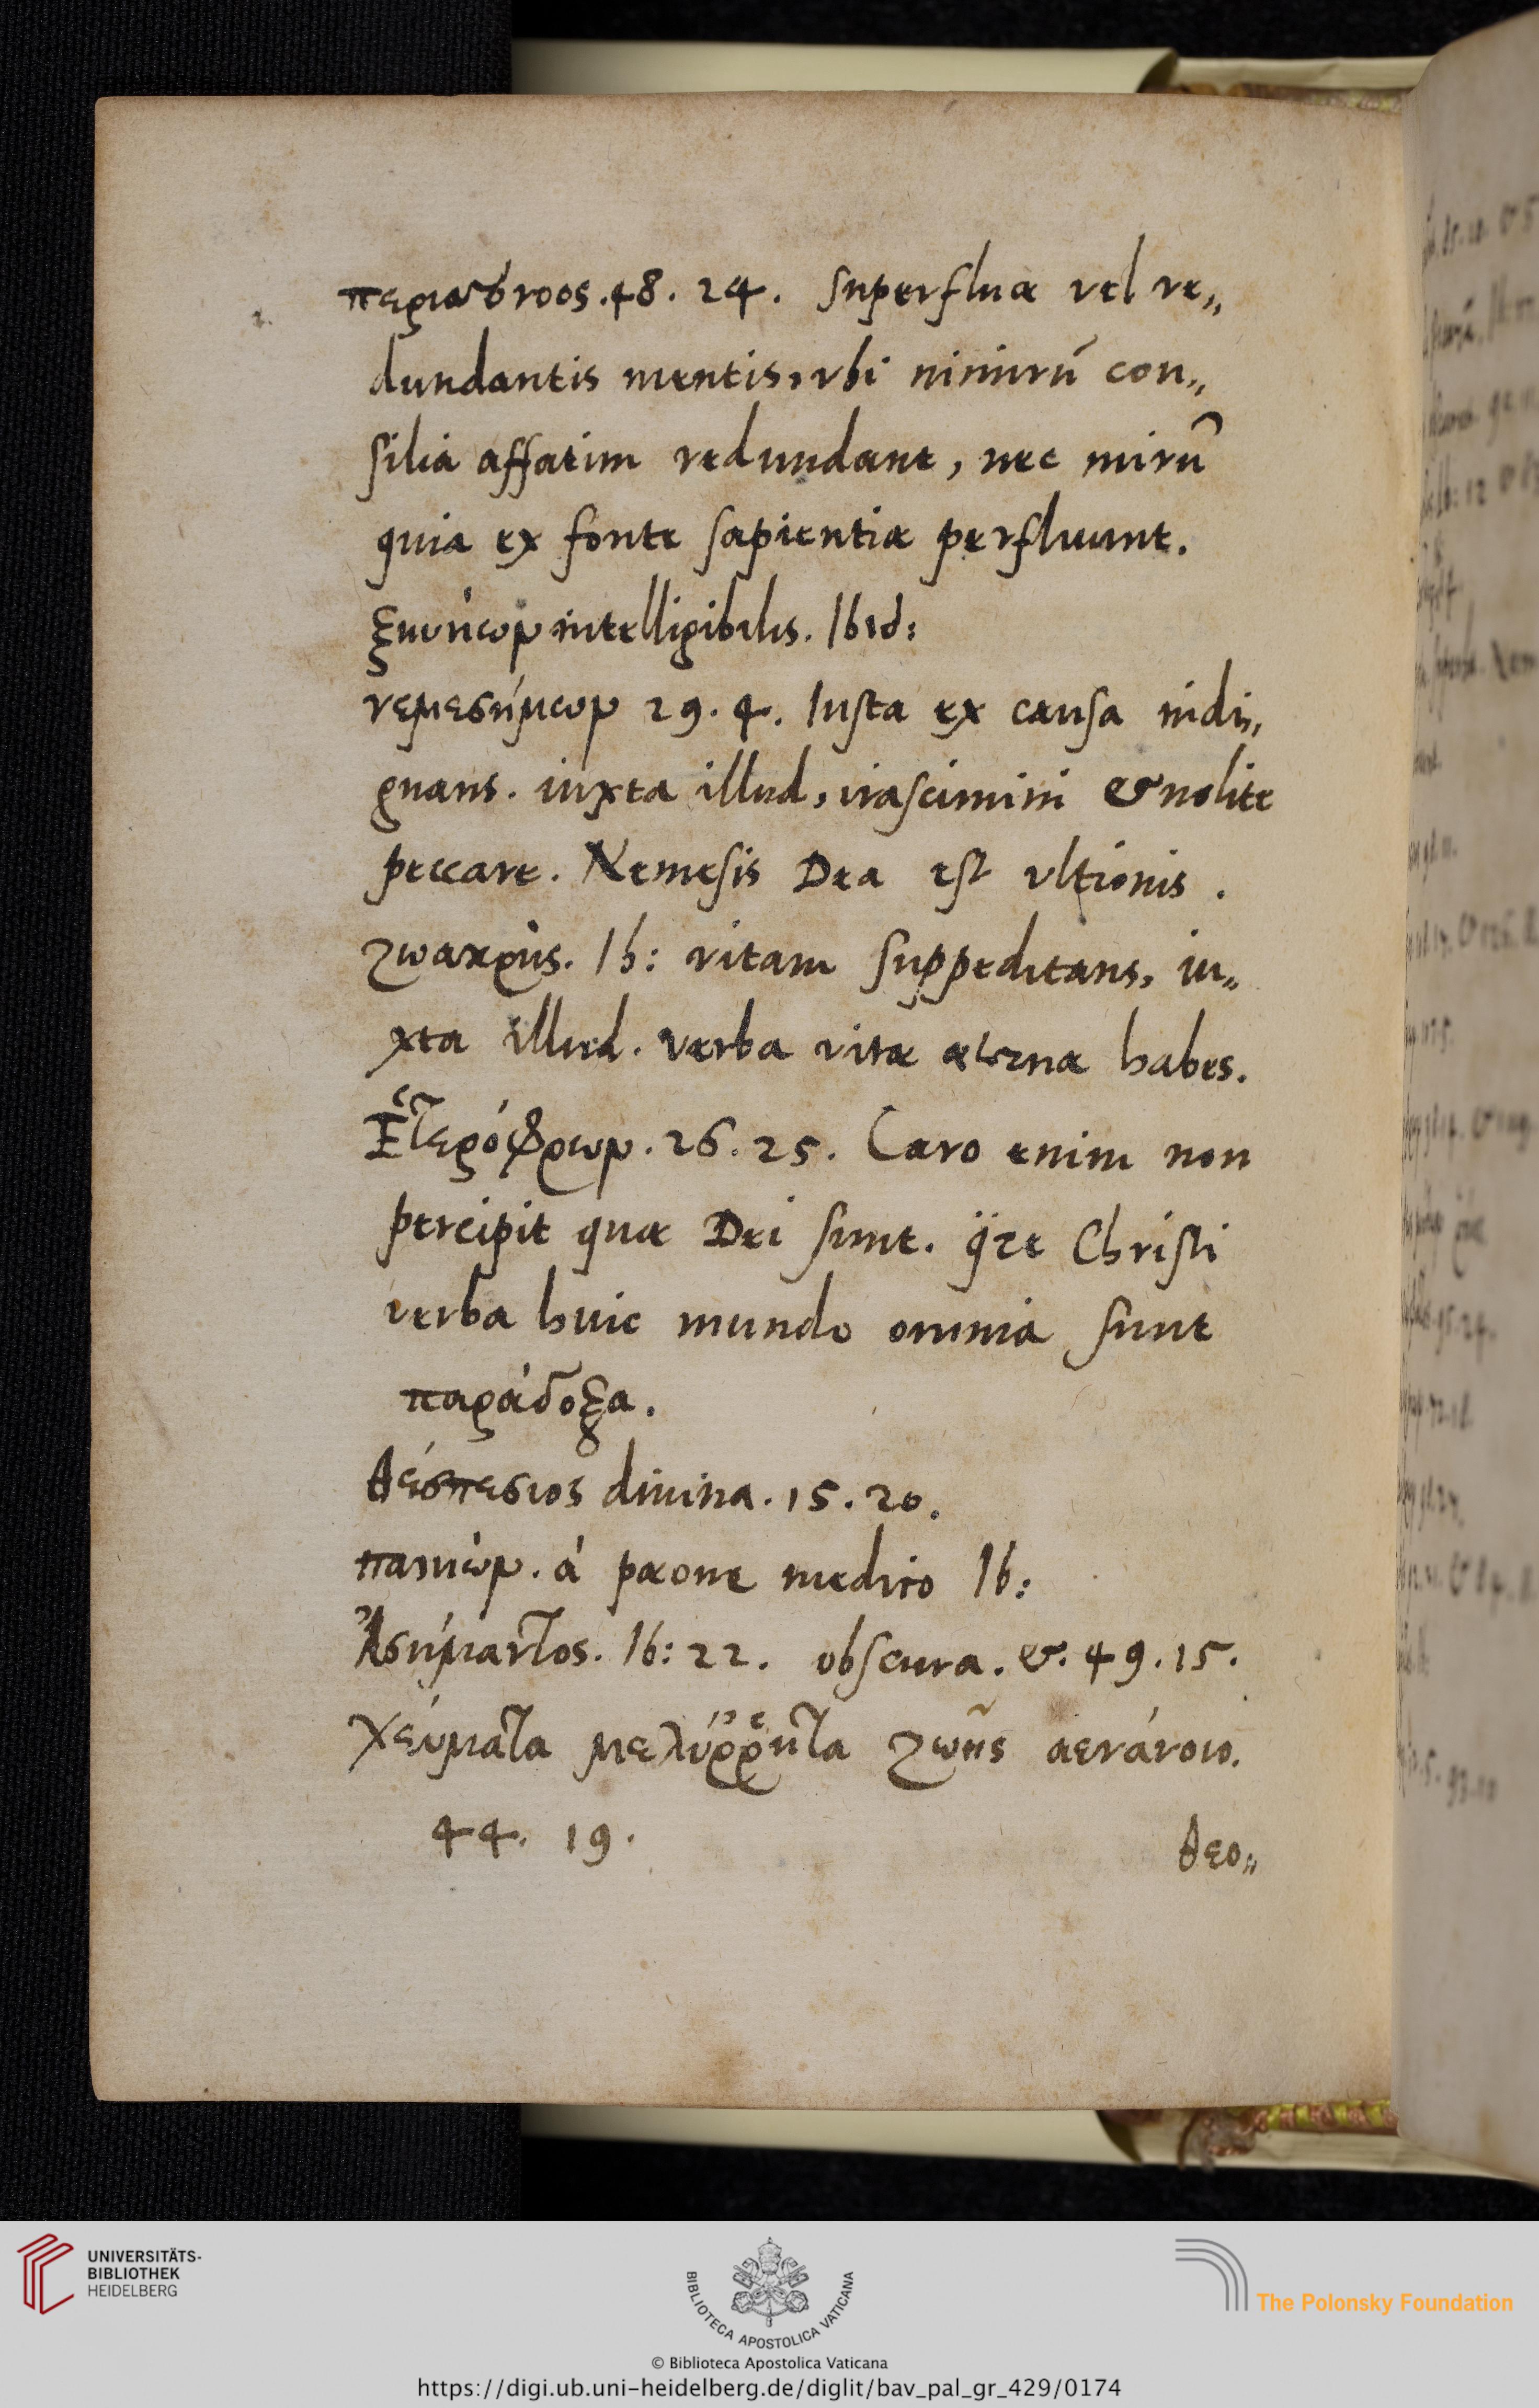 περισσόνοος. 48. 24. superfluæ vel re„
dundantis mentis, vbi nimirū con„
silia affatim redundant, nec mirū
quia ex fonte sapientiæ perfluunt.
ξυνήων intelligibilis. Ibid:
νεμεσήμων 29. 4. Iusta ex causa indi„
gnans. iuxta illud, irascimini & nolite
peccare. Nemesis Dea est vltionis.
ζωαρκής. Ib: vitam suppeditans, iu„
xta illud. verba vitæ æternæ habes.
Ἑτερόφρων. 26. 25. Caro enim non
percipit quæ Dei sunt. Christi
verba huic mundo omnia sunt
παράδοξα.
θέσπεσιος diuina. 15. 20.
παιιών. à pæone medico Ib:
Ἀσήμαντος. Ib: 22. obscura. &. 49. 15.
χεύματα μελύῤῥητα ζωῆς αενάνοιο.
44. 19.
θεο„
UNIVERSITÄTS-
BIBLIOTHEK
HEIDELBERG
BIBLIOTECA APOSTOLICA VATICANA
The Polonsky Foundation
© Biblioteca Apostolica Vaticana
https://digi.ub.uni-heidelberg.de/diglit/bav_pal_gr_429/0174